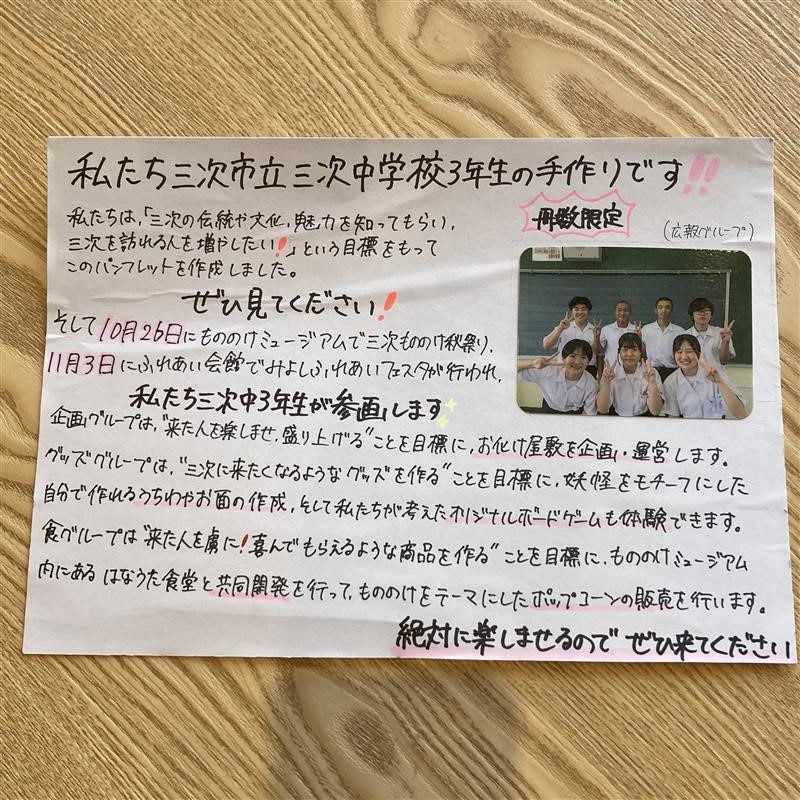 私たち三次市立三次中学校3年生の手作りです!!
冊数限定
(広報グループ)
私たちは、「三次の伝統や文化、魅力を知ってもらい、
三次を訪れる人を増やしたい!」という目標をもって
このパンフレットを作成しました。
ぜひ見てください!
そして10月26日にもののけミュージアムで三次もののけ秋祭り、
11月3日にふれあい会館でみよしふれあいフェスタが行われ、
私たち三次中3年生が参画します
企画グループは、"来た人を楽しませ、盛り上げる"ことを目標に、お化け屋敷を企画・運営します。
グッズグループは、"三次に来たくなるようなグッズを作る"ことを目標に、妖怪をモチーフにした
自分で作れるうちわやお面の作成、そして私たちが考えたオリジナルボードゲームも体験できます。
食グループは"来た人を虜に!喜んでもらえるような商品を作る"ことを目標に、もののけミュージアム
内にあるはなうた食堂と共同開発を行って、もののけをテーマにしたポップコーンの販売を行います。
絶対に楽しませるのでぜひ来てください